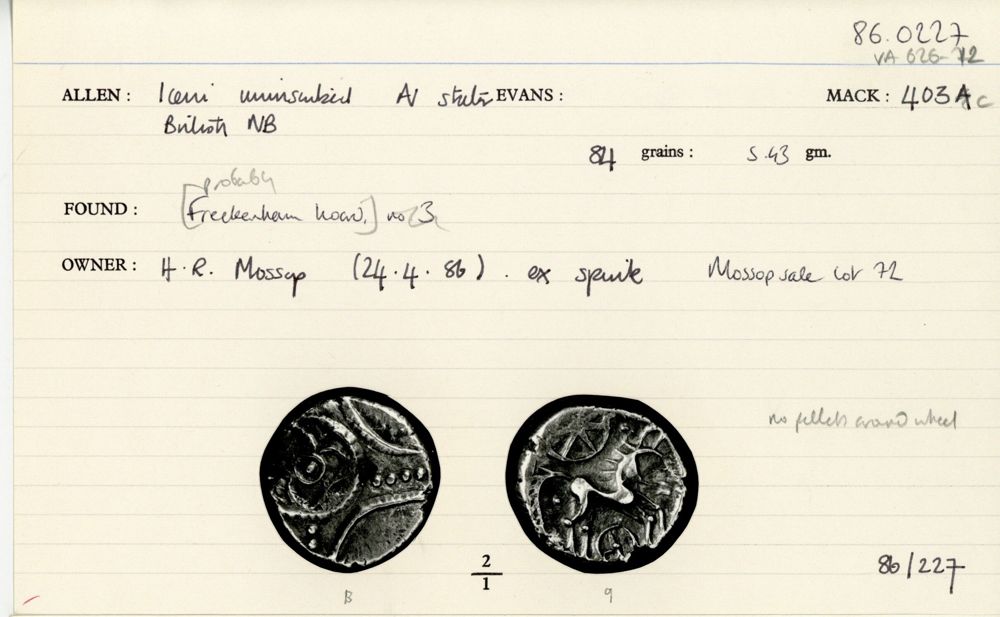 86.0227
VA 626-12
ALLEN : Iceni uninscribed AV stater EVANS : MACK : 403A c
British NB
84 grains : 5.43 gm.
probably
FOUND : [Freckenham hoard,] no 3
OWNER : H.R. Mossop (24.4.86). ex Spink Mossop sale lot 72
no pellets around wheel
2
1
B 9
86/227